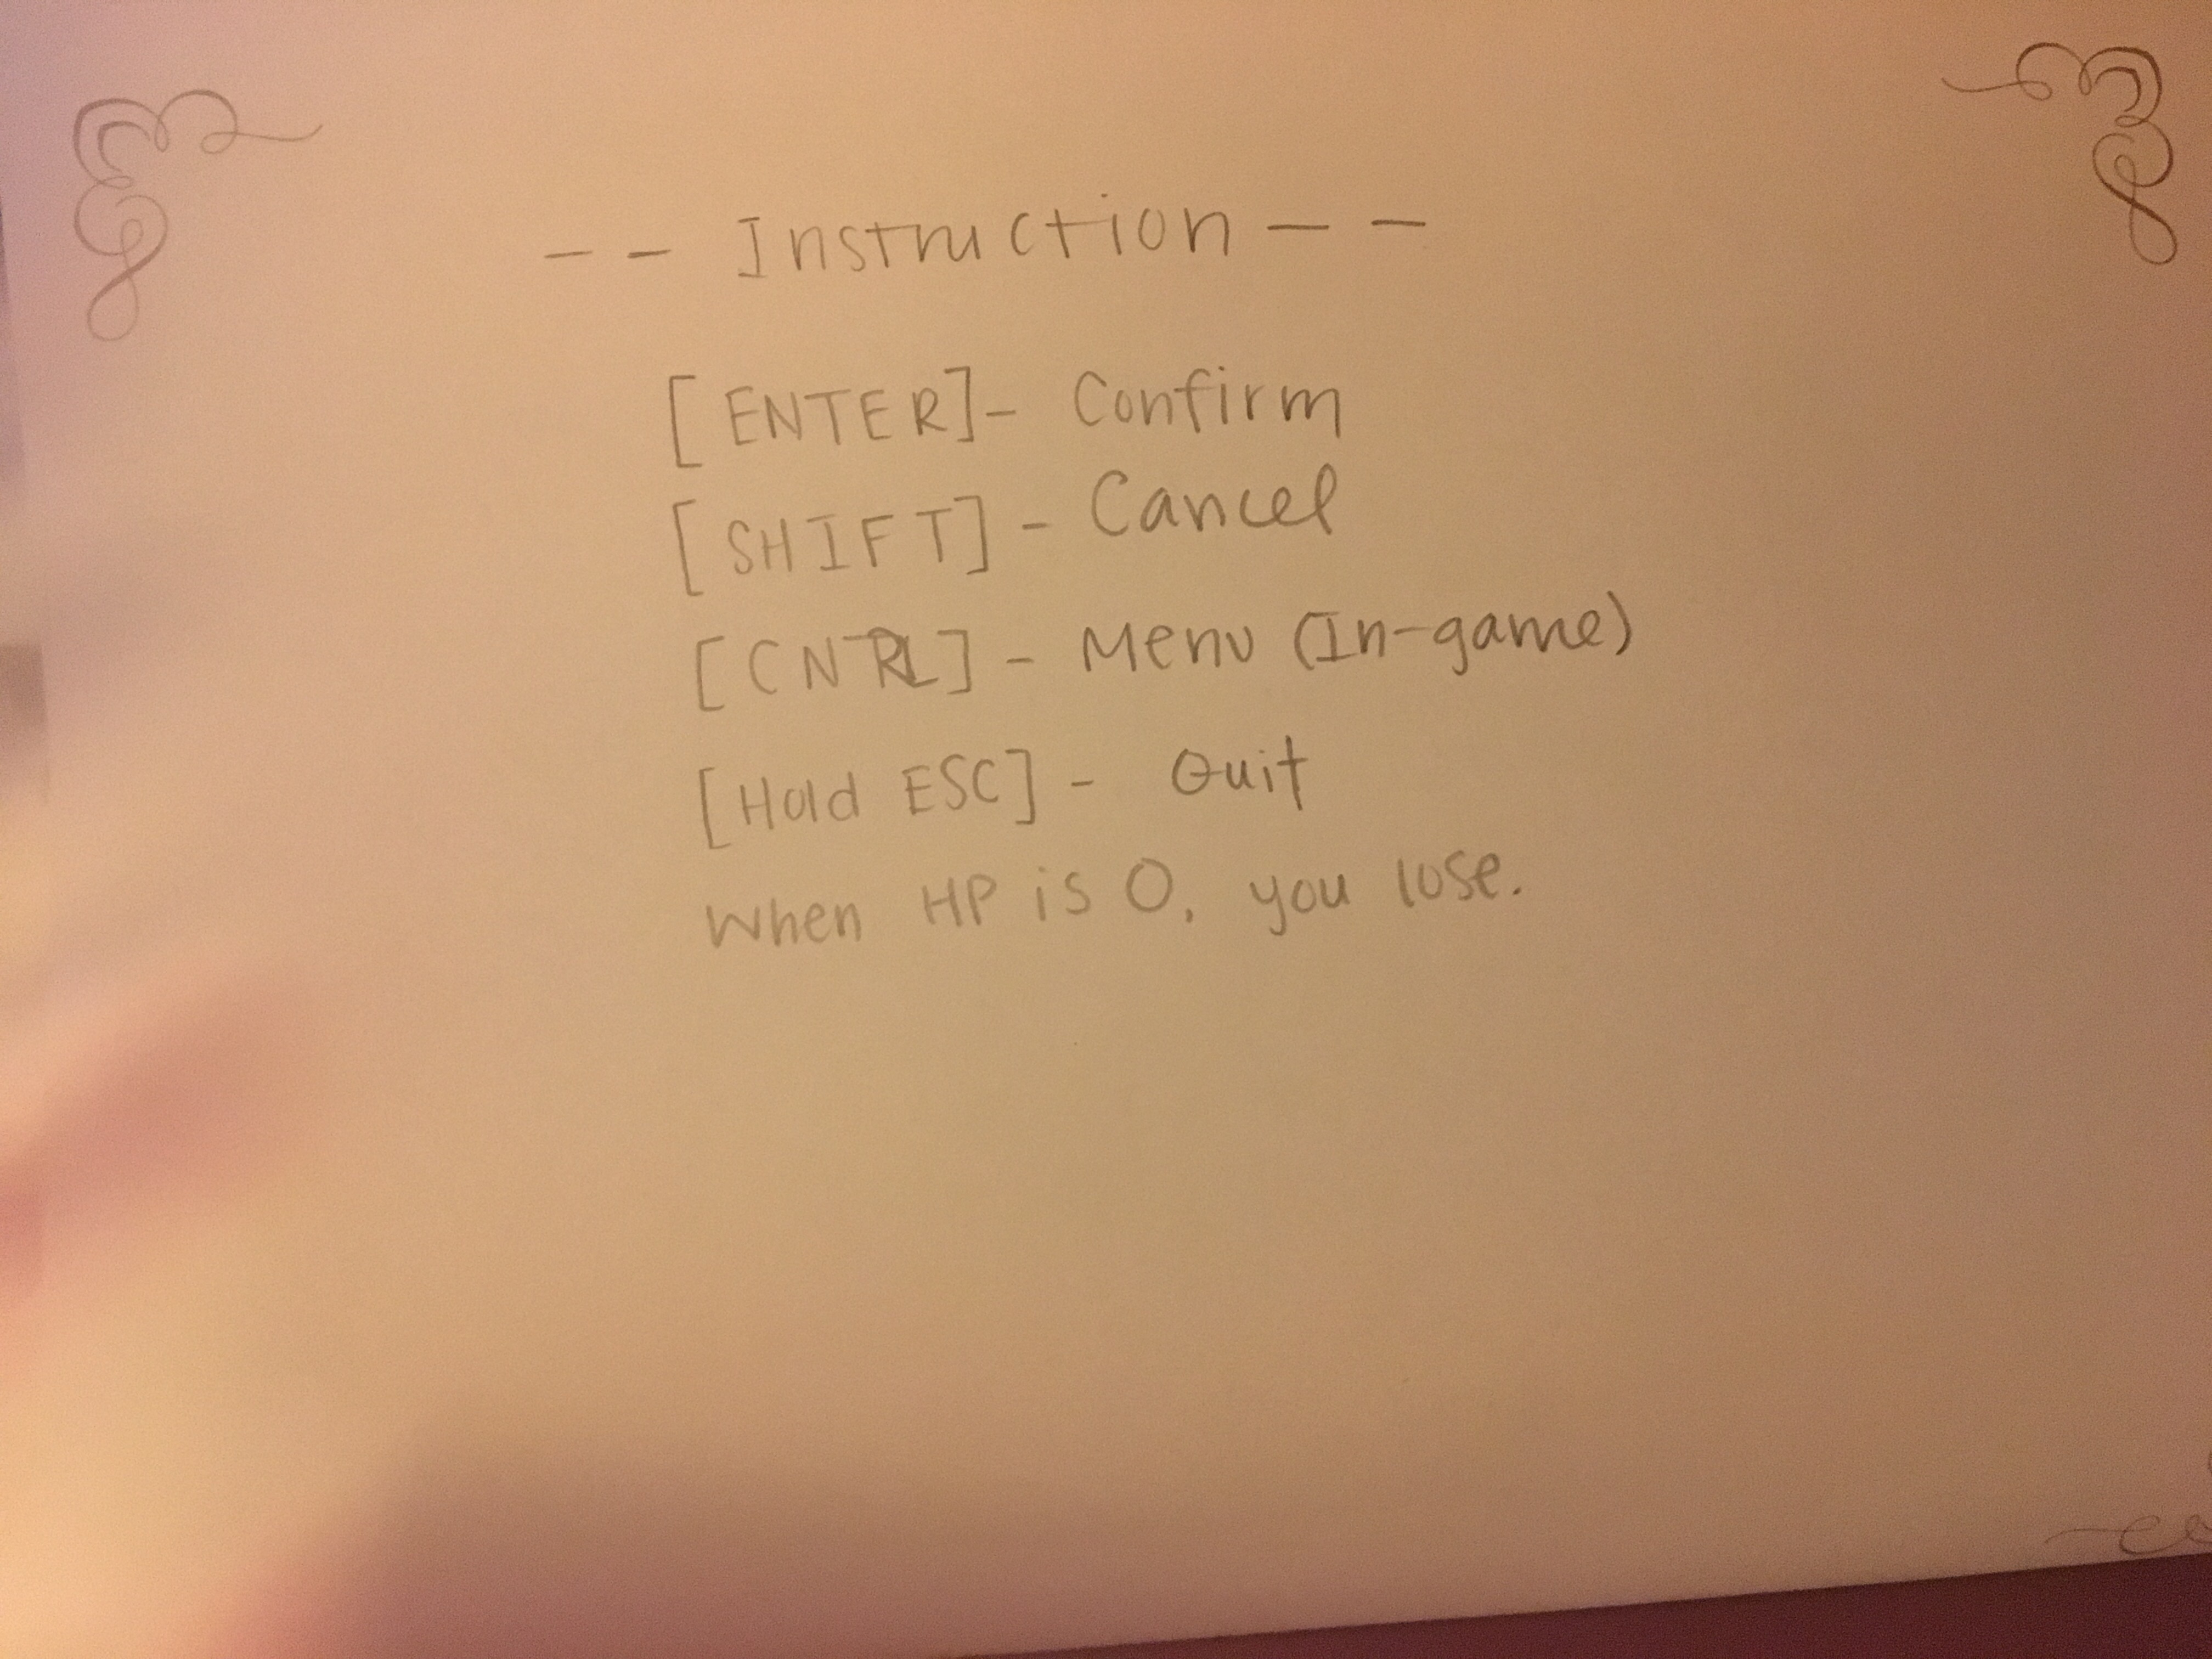 -- Instruction --
[ENTER]- Confirm
[SHIFT] - Cancel
[CNTRL] - Menu (In-game)
[Hold ESC] - Quit
When HP is 0, you lose.